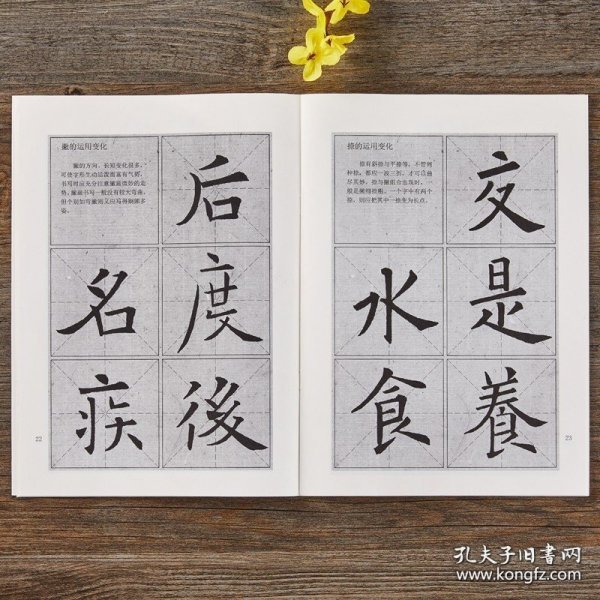 撇的运用变化
撇的方向、长短变化很多,
可使字形生动活泼而富有气韵。
书写时应充分注意撇画微妙的走
势,撇画书写一般没有较大弯曲,
但个别如弯撇则又应写得婀娜多
姿。
后
名
度
疾
後
22
捺的运用变化
捺有斜捺与平捺等,不管何
种捺,都应一波三折,才可以曲
尽其妙。捺与撇组合出现时,一
般是撇细捺粗。一个字中有两个
捺,则应把其中一捺变为长点。
文
水
是
食
養
23
孔夫子旧书网
www.kongfz.com